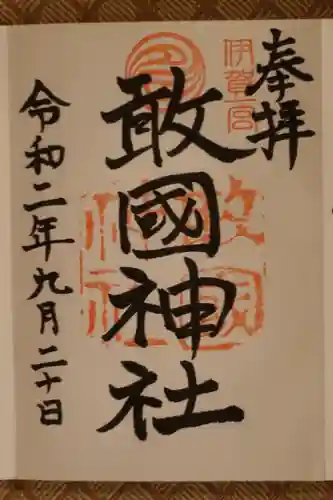 奉拝
伊賀一宮
敢國神社
敢國神社
令和二年九月二十日